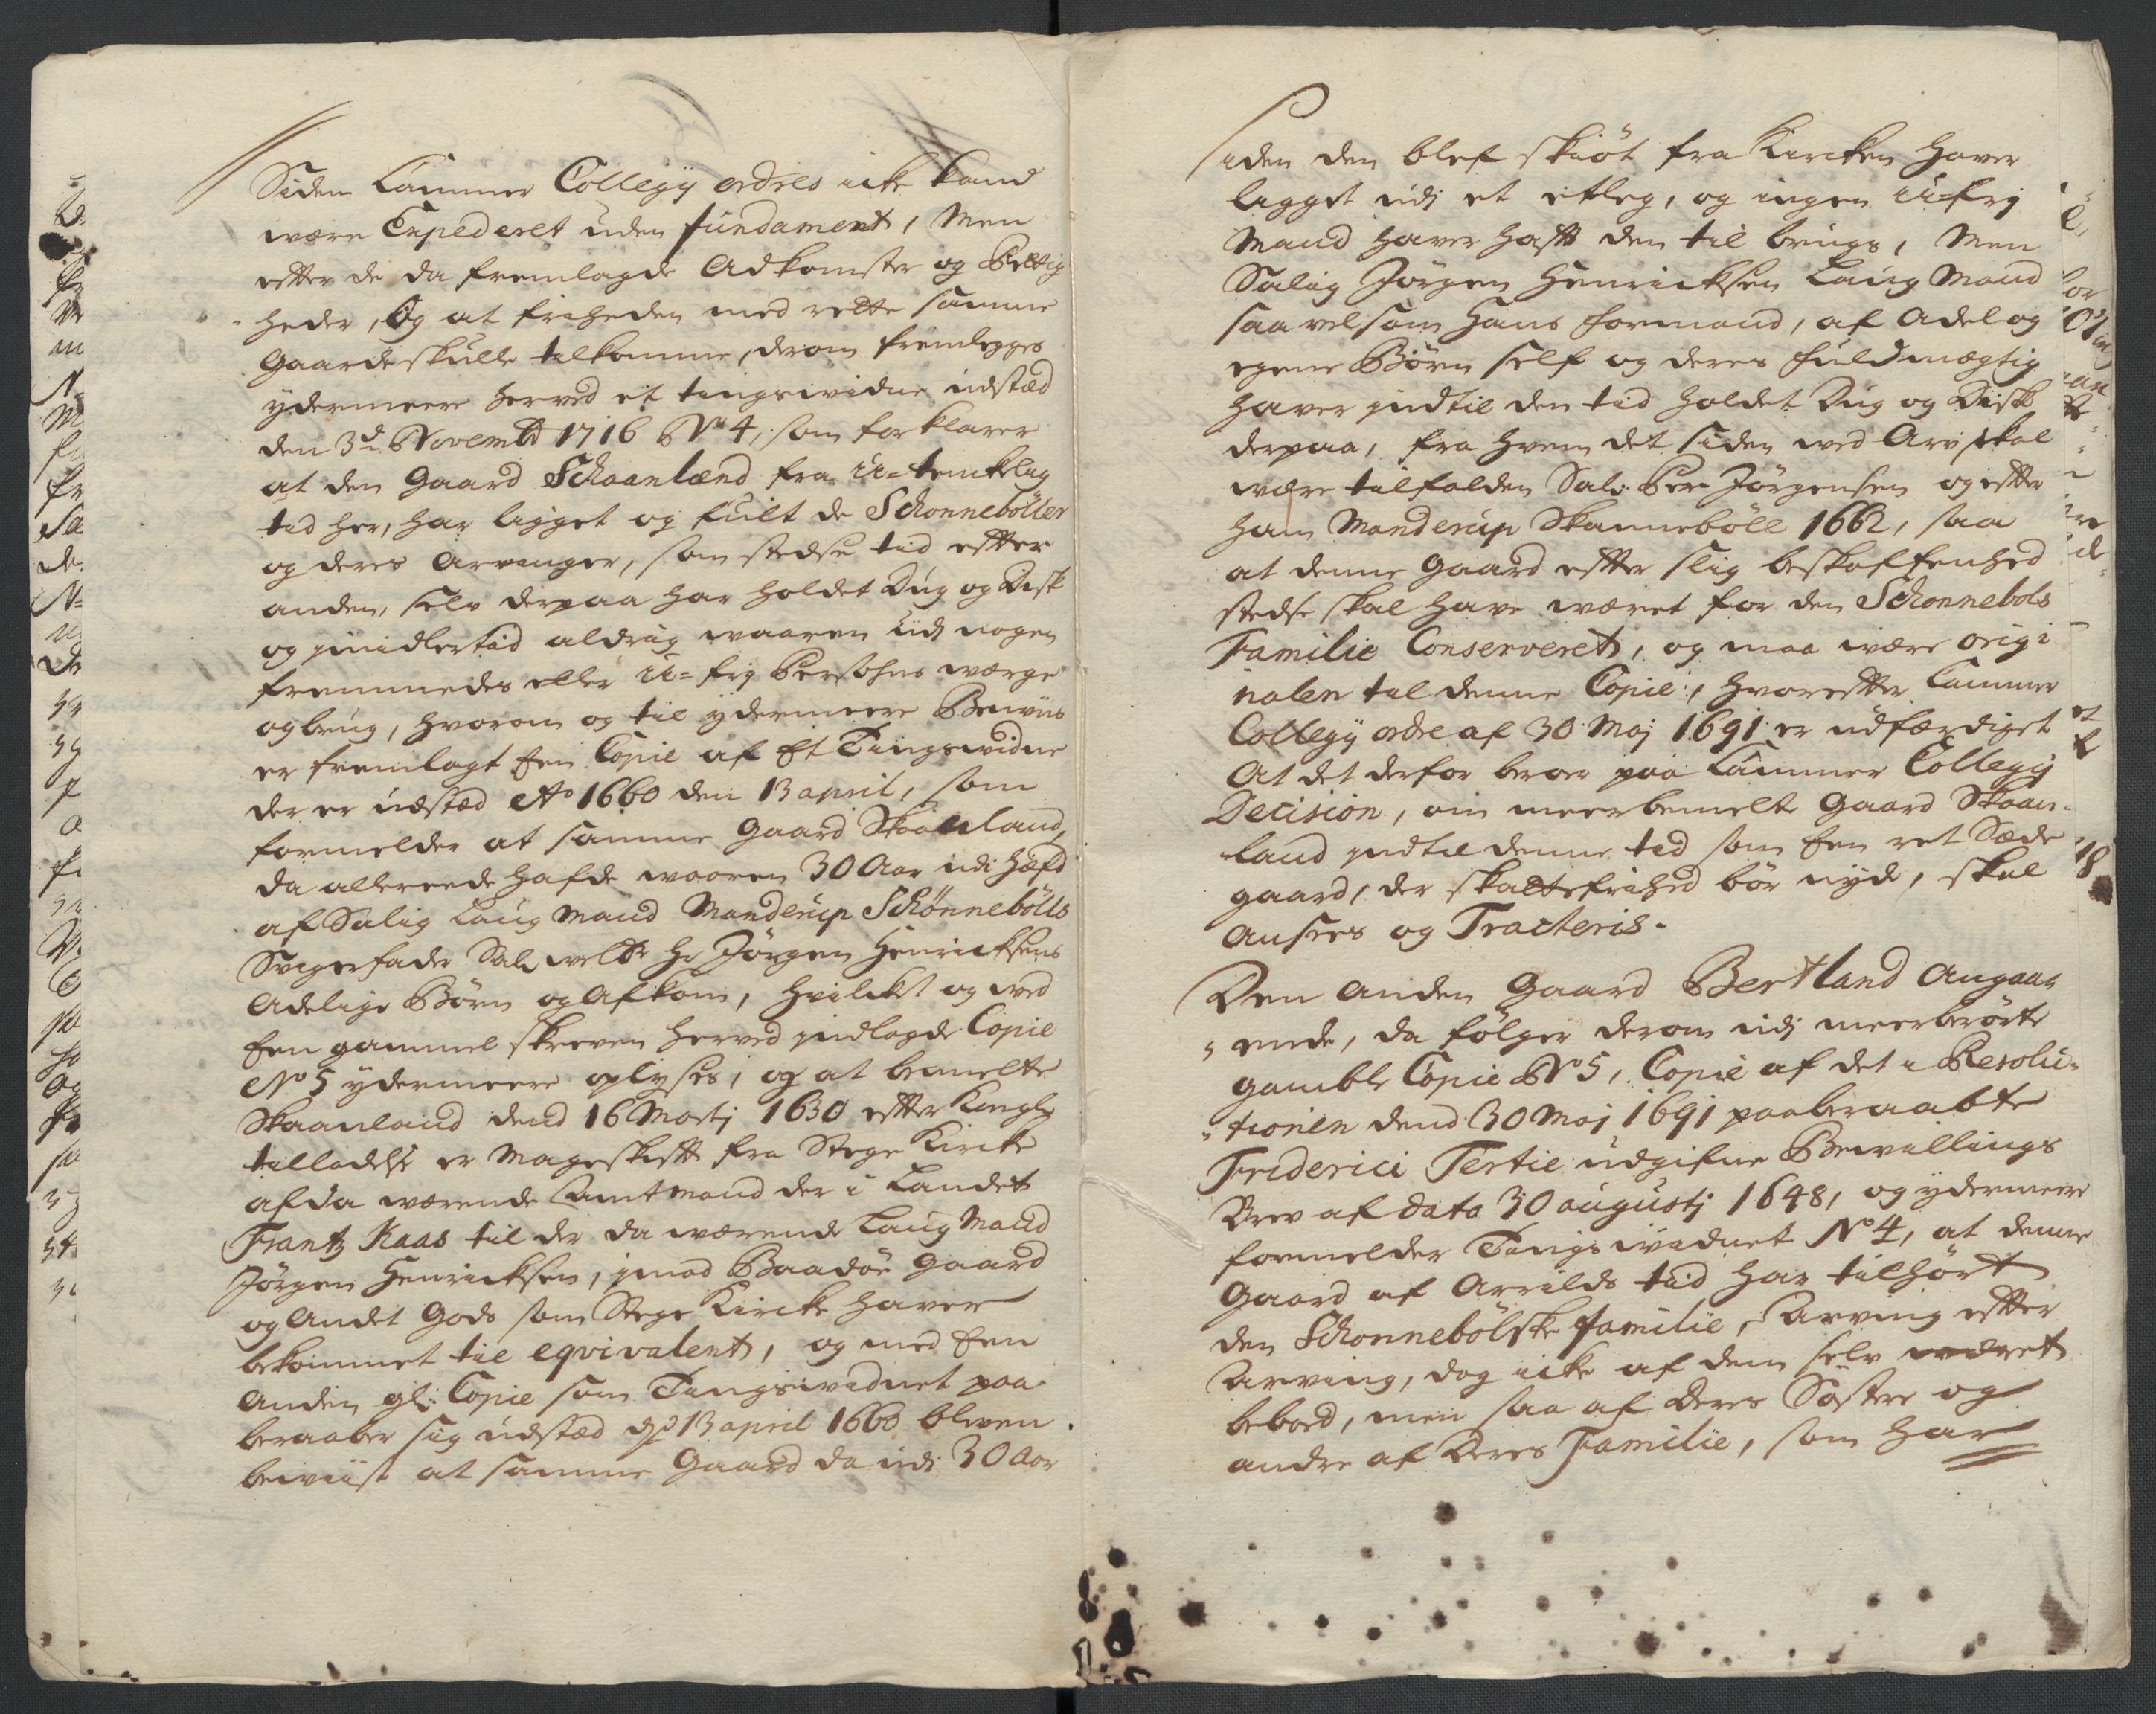 Siden Cammer Collegij ordres icke kand
være Expederet uden fundament, Men
efter de da fremlagde Adkomster og Rettig
heder, Og at friheden med rette samme
Gaarde skulle tilkomme, derom fremlegges
ydermeere herved et tingsvidne udstæd
den 3d Novembr 1716 No 4, som forklarer
at den Gaard Schaanland fra u-tenckelig
tid her, har ligget og fult de Schonneböller
og deres Arvinger, som stedse tid efter
anden, selv derpaa har holdet Dug og Disk
og imidlertid aldrig vaaren udj nogen
fremmedes eller u-frij Persohns værge
og brug, hvorom og til ydermeere Beviis
er fremlagt Een Copie af Et Tingsvidne
der er udstæd Ao 1660 den 13 april, som
formelder at samme Gaard Skaanland,
da allereede hafde vaaren 30 Aar udi hæfd
af Salig Laug Mand Manderup Schønnebölls
Svigerfader Sal. velbr Hr Jörgen Henricksens
Adelige Börn og Afkom, hvilcket og ved
Een gammel skreven herved indlagde Copie
No 5 ydermeere oplyses, og at bemelte
Skaanland dend 16 Martj 1630 efter Kongl.
tilladelse er Mageskift fra Stege Kircke
af da værende Amtmand der i Landet
Frantz Kaas til der da værende Laug Mand
Jörgen Henricksen, imod Baadöe Gaard
og Andet Gods som Stege Kircke haver
bekommet til eqvivalent, og med Een
Anden gl. Copie som Tingsvidnet paa-
beraaber sig udstæd dend 13 april 1660 bleven
beviist at samme Gaard da udi 30 Aar
siden den blef skiöt fra Kircken haver
ligget udj et etleg, og ingen u-frj
Mand haver haft den til brugs, Men
Salig Jörgen Henricksen Laug Mand
saavelsom Hans formand, af Adel og
egene Börn self og deres fuldmægtig
haver indtil den tid holdet Dug og Disk
derpaa, fra hvem det siden ved Arv skal
være tilfalden Sal. Per Jörgensen og efter
ham Manderup Skannebölle 1662, saa
at denne Gaard efter slig beskaffenhed
stedse skal have været for den Schonnebols
Familie Conserveret, og maa være origi
nalen til denne Copie, hvorefter Cammer
Collegij ordre af 30 Maj 1691 er udfærdiget
At det derfor beroer paa Cammer Collegij
Decision, om meerbemelte Gaard Skaan-
land indtil denne tid som Een ret Sæde
gaard, der skattefrihed bör nyde, skal
Ansees og Tracteris.
Den Anden Gaard Bertland Angaa-
ende, da fölger derom udj meerberörte
gamble Copie No 5, Copie af det i Resolu-
tionen dend 30 Maj 1691 paaberaabte
Friderici Tertie udgifne Bevillings
Brev af dato 30 augustj 1648, og ydermeere
formelder Tingsvidnet No 4, at denne
Gaard af Arrilds tid har tilhört
den Schonnebölske familie, Arving efter
Arving, dog icke af dem selv været
beboed, men saa af Deres Söstre og
andre af Deres Familie, som har